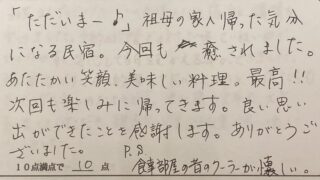 「ただいまー♪」祖母の家へ帰った気分
になる民宿。今回も癒されました。
あたたかい笑顔、美味しい料理。最高!!
次回も楽しみに帰ってきます。良い思い
出ができたことを感謝します。ありがとうご
ざいました。 P.S
10点満点で 10 点 食事部屋の昔のクーラーが懐しい。